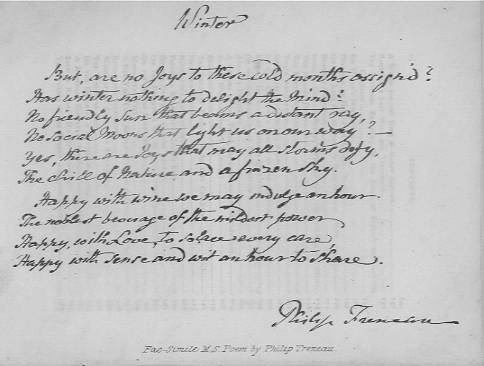 Winter
But, are no Joys to these cold months assign'd?
Has winter nothing to delight the Mind?
No friendly Sun that beams a distant ray,
No social Moons that light us on our way?—
Yes, there are Joys that may all storms defy,
The chill of Nature and a frozen sky.
Happy with wine we may indulge an hour
The noblest beverage of the mildest power
Happy, with Love, to solace every care,
Happy with sense and wit an hour to share.
Philip Freneau
Fac-Simile M.S. Poem by Philip Freneau